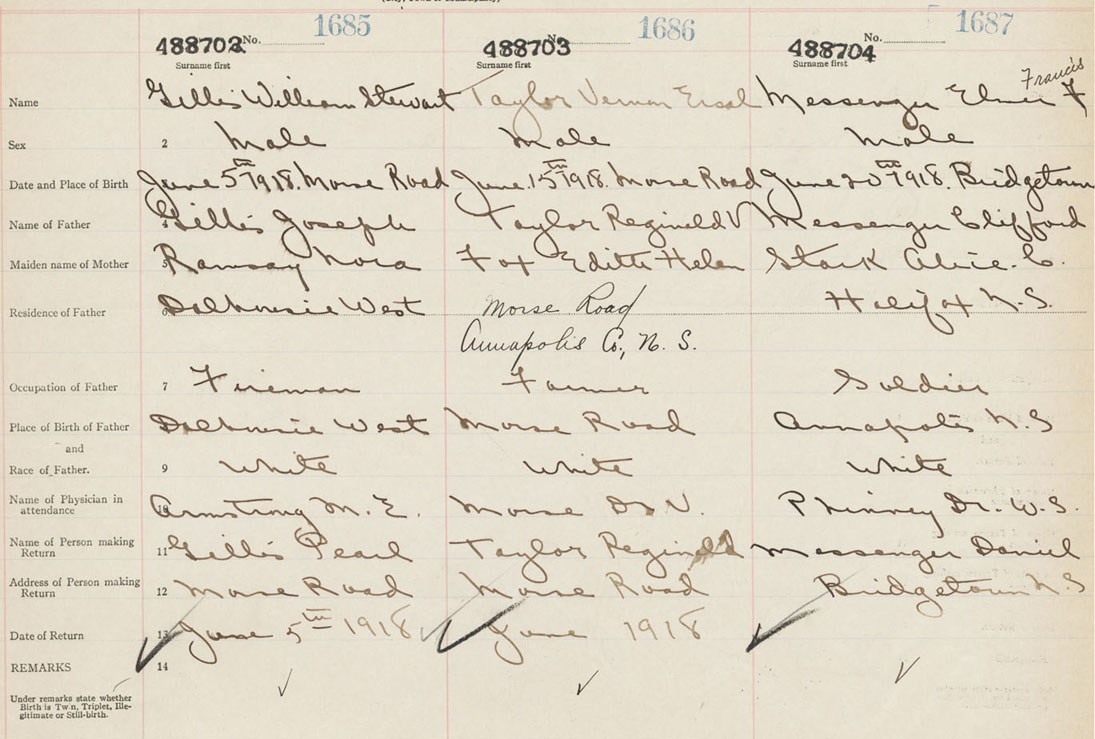 1685 1686 1687
488702 No. 488703 No. 488704 No.
Surname first Surname first Surname first
Francis
Name Gillis William Stewart Taylor Vernon Messenger Elmer F
Sex 2 Male Male Male
Date and Place of Birth June 5th 1918. Morse Road June 15th 1918. Morse Road June 20th 1918. Bridgetown
Name of Father 4 Gillis Joseph Taylor Reginald V Messenger Clifford
Maiden name of Mother 5 Ramsay Nora Fox Edith Helen Stark Alice. C.
Residence of Father 6 Dalhousie West Morse Road Halifax N.S.
Annapolis Co., N. S.
Occupation of Father 7 Fireman Farmer Soldier
Place of Birth of Father Dalhousie West Morse Road Annapolis N.S
and
Race of Father. 9 White White White
Name of Physician in
attendance 10 Armstrong M. E. Morse Dr V. Phinney Dr. W.S.
Name of Person making
Return 11 Gillis Pearl Taylor Reginald Messenger Daniel
Address of Person making
Return 12 Morse Road Morse Road Bridgetown N.S
Date of Return 13 June 5th 1918 June 1918
REMARKS 14
Under remarks state whether
Birth is Twin, Triplet, Ille-
gitimate or Still-birth.